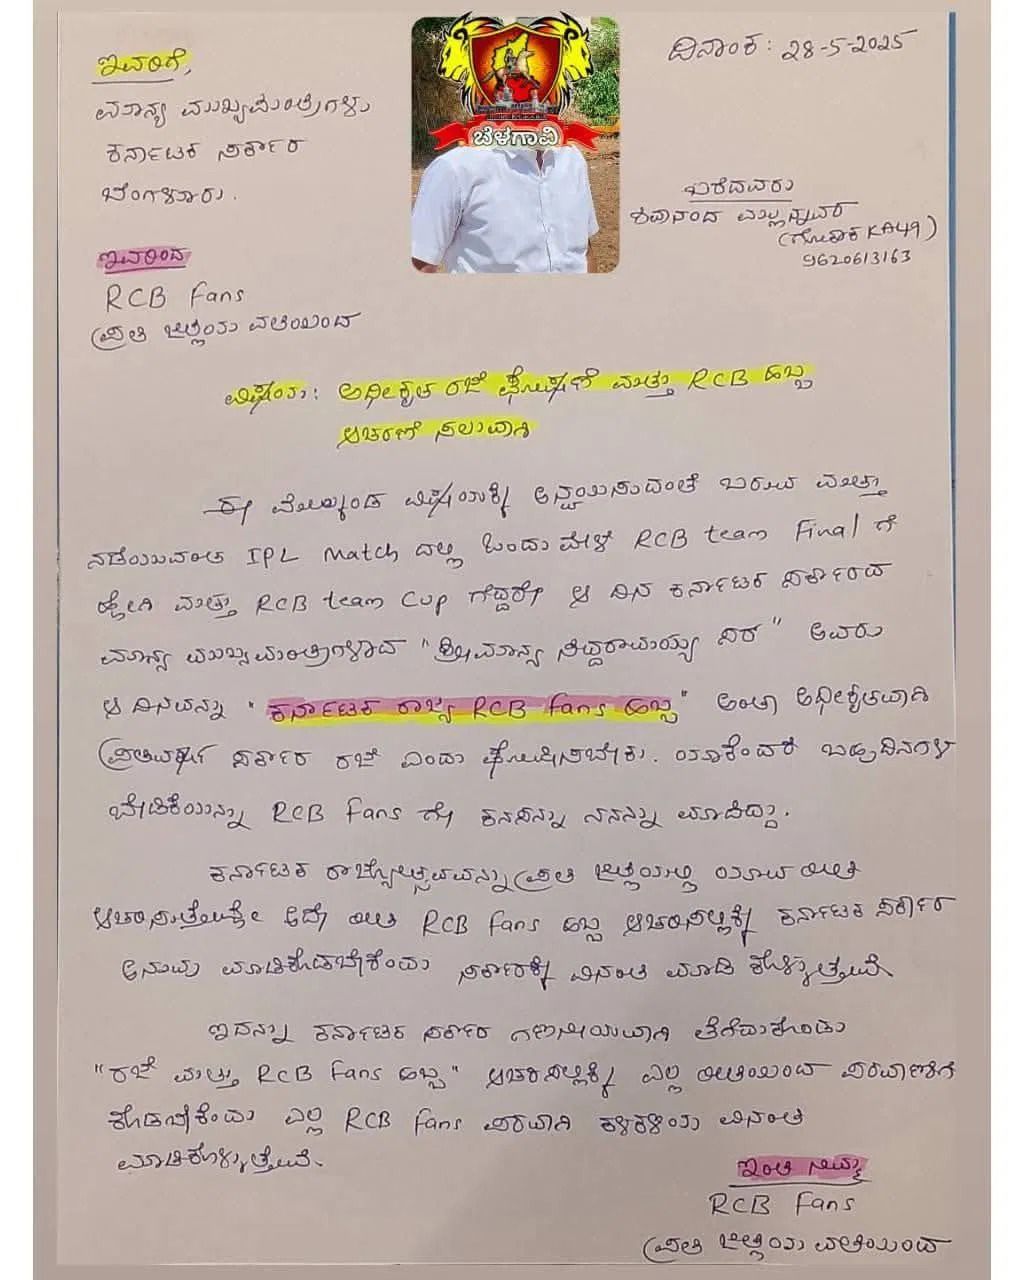 ಇವರಿಗೆ,
ಮಾನ್ಯ ಮುಖ್ಯಮಂತ್ರಿಗಳು
ಕರ್ನಾಟಕ ಸರ್ಕಾರ
ಬೆಂಗಳೂರು.
ಬೆಳಗಾವಿ
ದಿನಾಂಕ: 28-5-2025
ಬರೆದವರು
ಶಿವಾನಂದ ಮಲ್ಲನ್ನವರ
(ಗೋಕಾಕ KA49)
9620613163
ಇವರಿಂದ
RCB fans
ಪ್ರತಿ ಜಿಲ್ಲೆಯ ವತಿಯಿಂದ
ವಿಷಯ: ಅಧೀಕೃತ ರಜೆ ಘೋಷಣೆ ಮತ್ತು RCB ಹಬ್ಬ
ಆಚರಣೆ ಸಲುವಾಗಿ
ಈ ಮೇಲ್ಕಂಡ ವಿಷಯಕ್ಕೆ ಅನ್ವಯಿಸುವಂತೆ ಬರುವ ಮತ್ತು
ನಡೆಯುವಂತ IPL Match ದಲ್ಲಿ ಒಂದು ವೇಳೆ RCB team Final ಗೆ
ಹೋಗಿ ಮತ್ತು RCB team Cup ಗೆದ್ದರೇ ಆ ದಿನ ಕರ್ನಾಟಕ ಸರ್ಕಾರದ
ಮಾನ್ಯ ಮುಖ್ಯಮಂತ್ರಿಗಳಾದ "ಶ್ರೀಮಾನ್ಯ ಸಿದ್ದರಾಮಯ್ಯ ಸರ" ಅವರು
ಆ ದಿನವನ್ನು "ಕರ್ನಾಟಕ ರಾಜ್ಯ RCB fans ಹಬ್ಬ" ಅಂತಾ ಅಧೀಕೃತವಾಗಿ
ಪ್ರತಿವರ್ಷ ಸರ್ಕಾರಿ ರಜೆ ಎಂದು ಘೋಷಿಸಬೇಕು. ಯಾಕೆಂದರೆ ಬಹುದಿನಗಳ
ಬೇಡಿಕೆಯನ್ನು RCB fans ಗೇ ಕನಸನ್ನು ನನಸು ಮಾಡಿದ್ದು.
ಕರ್ನಾಟಕ ರಾಜ್ಯೋತ್ಸವವನ್ನು ಪ್ರತಿ ಜಿಲ್ಲೆಯಲ್ಲಿ ಯಾವ ರೀತಿ
ಆಚರಿಸುತ್ತೇವೋ ಅದೇ ರೀತಿ RCB fans ಹಬ್ಬ ಆಚರಿಸಲಿಕ್ಕೆ ಕರ್ನಾಟಕ ಸರ್ಕಾರ
ಅನುವು ಮಾಡಿಕೊಡಬೇಕೆಂದು ಸರ್ಕಾರಕ್ಕೆ ವಿನಂತಿ ಮಾಡಿ ಕೊಳ್ಳುತ್ತೇವೆ.
ಇದನ್ನು ಕರ್ನಾಟಕ ಸರ್ಕಾರ ಗಣನೀಯವಾಗಿ ತೆಗೆದುಕೊಂಡು
"ರಜೆ ಮತ್ತು RCB fans ಹಬ್ಬ" ಆಚರಿಸಲಿಕ್ಕೆ ಎಲ್ಲ ರೀತಿಯಿಂದ ಪರವಾಣಿಗೆ
ಕೊಡಬೇಕೆಂದು ಎಲ್ಲ RCB fans ಪರವಾಗಿ ಕಳಕಳಿಯ ವಿನಂತಿ
ಮಾಡಿಕೊಳ್ಳುತ್ತೇವೆ.
ಇಂತಿ ನಿಮ್ಮ
RCB fans
ಪ್ರತಿ ಜಿಲ್ಲೆಯ ವತಿಯಿಂದ